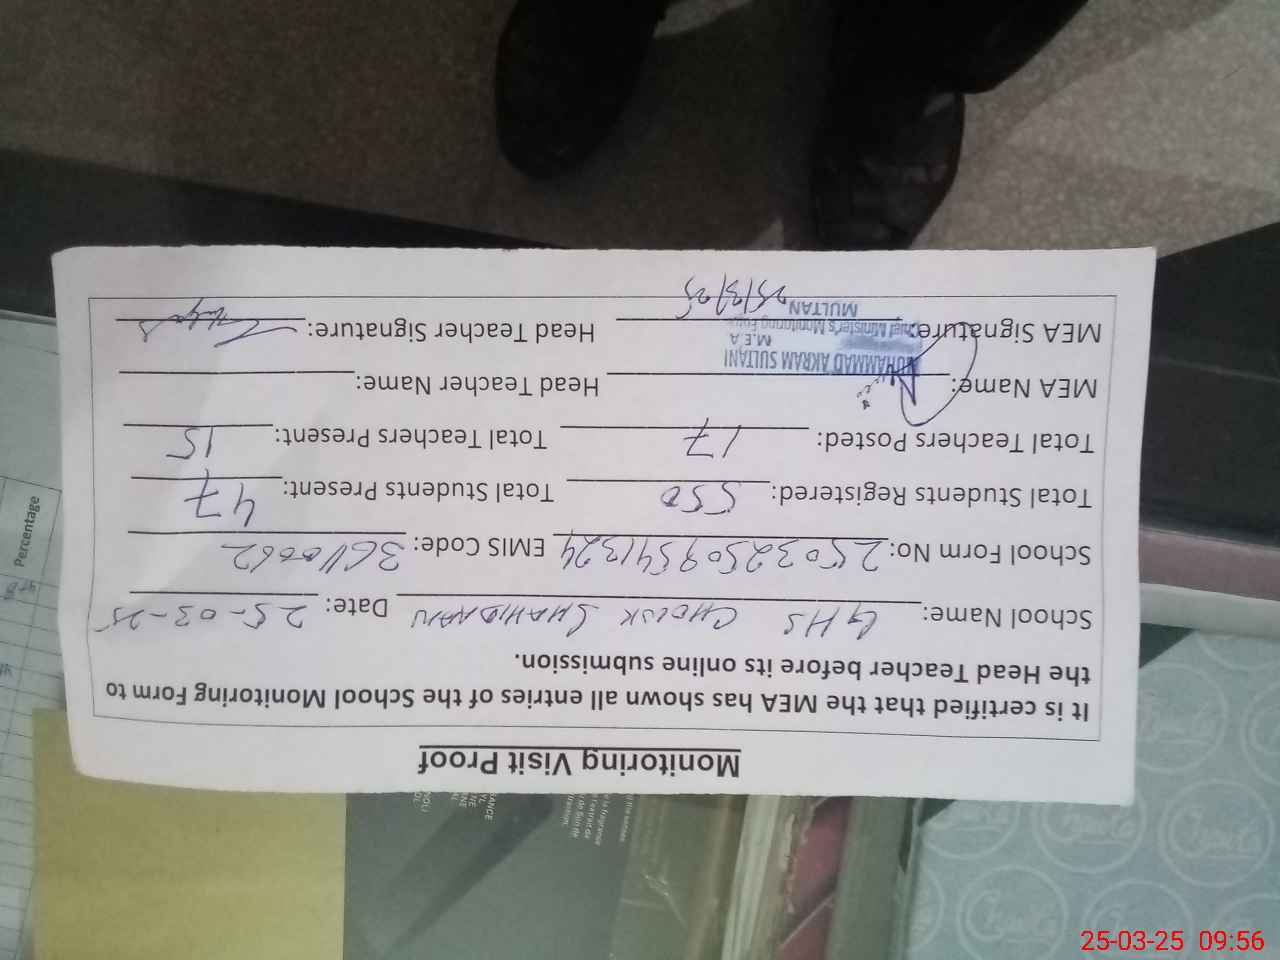 Monitoring Visit Proof
It is certified that the MEA has shown all entries of the School Monitoring Form to
the Head Teacher before its online submission.
School Name: GHS CHOWK SHAHIDAAN Date: 25-03-25
School Form No: 25032509541324 EMIS Code: 36110062
Total Students Registered: 550 Total Students Present: 47
Total Teachers Posted: 17 Total Teachers Present: 15
MEA Name: Head Teacher Name:
MUHAMMAD AKRAM SULTANI
M.E.A
Chief Minister's Monitoring Force
MULTAN
MEA Signature: Head Teacher Signature:
25/3/25
Percentage
25-03-25 09:56